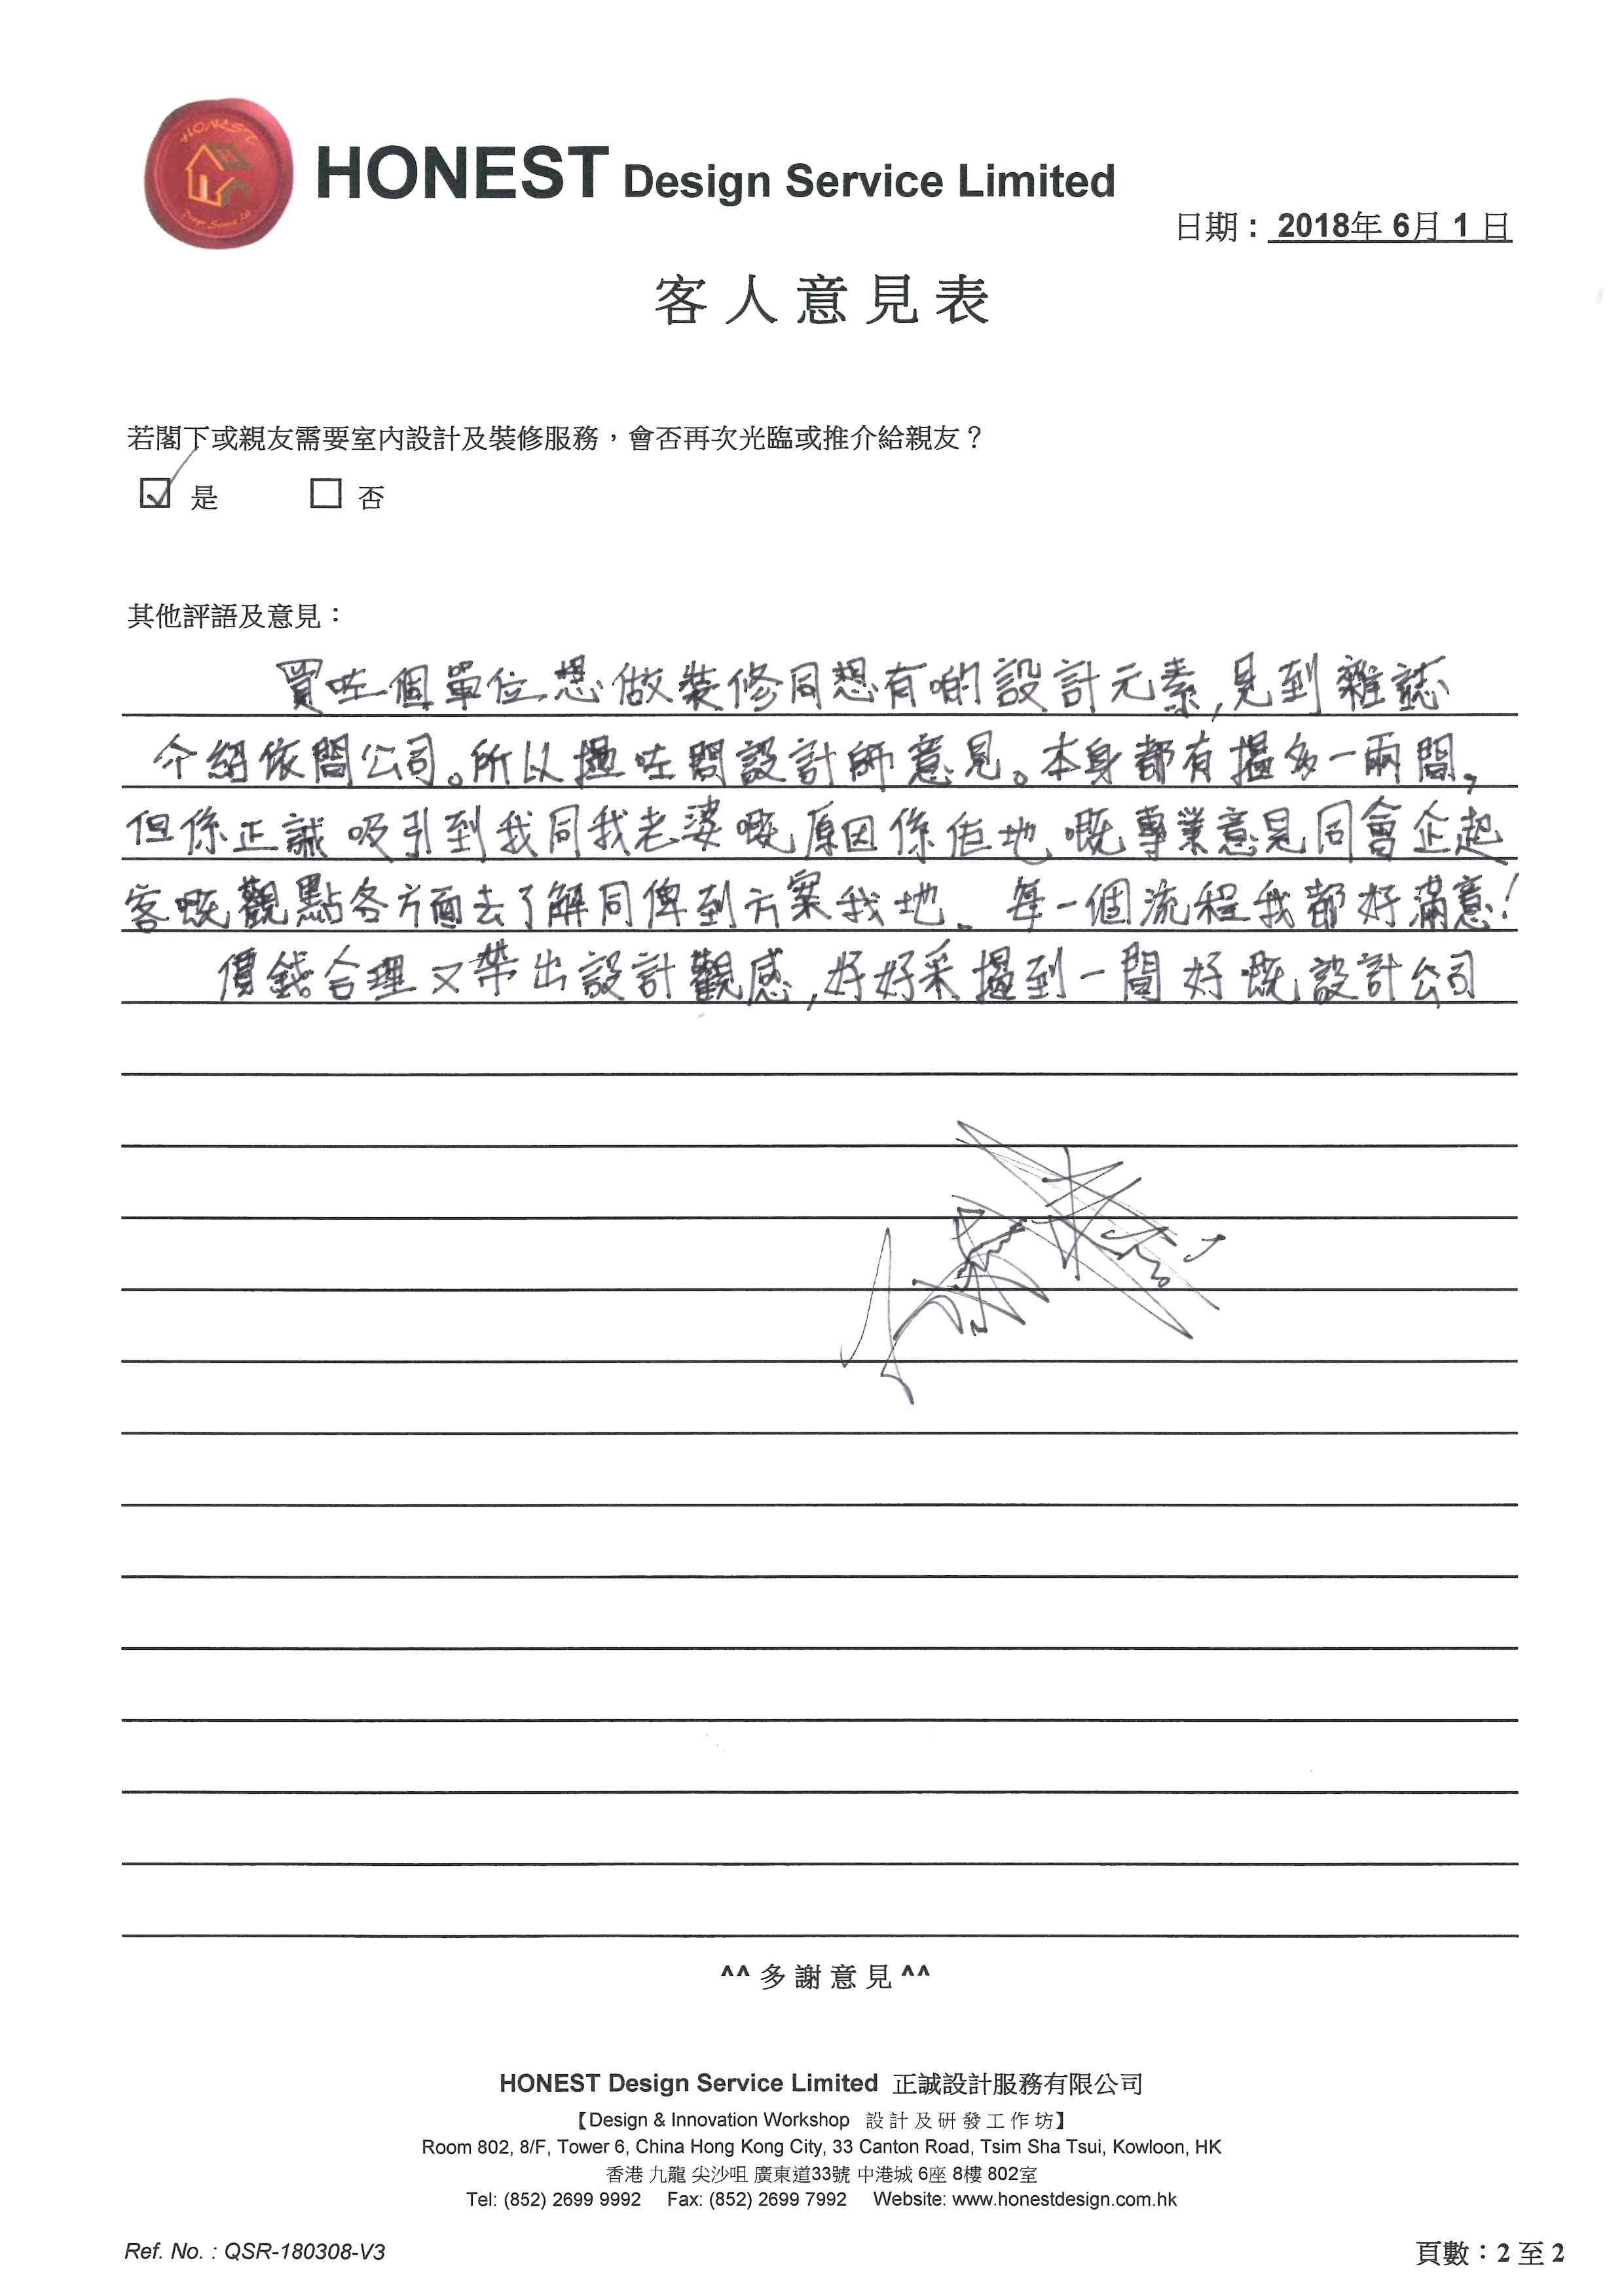 HONEST
Design Service Ltd.
HONEST Design Service Limited
日期： 2018年 6月 1 日
客人意見表
若閣下或親友需要室內設計及裝修服務，會否再次光臨或推介給親友？
☑ 是 ☐ 否
其他評語及意見：
買咗個單位想做裝修同想有啲設計元素,見到雜誌
介紹依間公司。所以搵咗間設計師意見。本身都有搵多一兩間,
但係正誠吸引到我同我老婆嘅原因係佢地嘅專業意見同會企起
客嘅觀點各方面去了解同俾到方案我地. 每一個流程我都好滿意!
價錢合理又帶出設計觀感,好好采搵到一間好嘅設計公司
^^ 多謝意見 ^^
HONEST Design Service Limited 正誠設計服務有限公司
【Design & Innovation Workshop 設計及研發工作坊】
Room 802, 8/F, Tower 6, China Hong Kong City, 33 Canton Road, Tsim Sha Tsui, Kowloon, HK
香港 九龍 尖沙咀 廣東道33號 中港城 6座 8樓 802室
Tel: (852) 2699 9992 Fax: (852) 2699 7992 Website: www.honestdesign.com.hk
Ref. No. : QSR-180308-V3
頁數：2 至 2